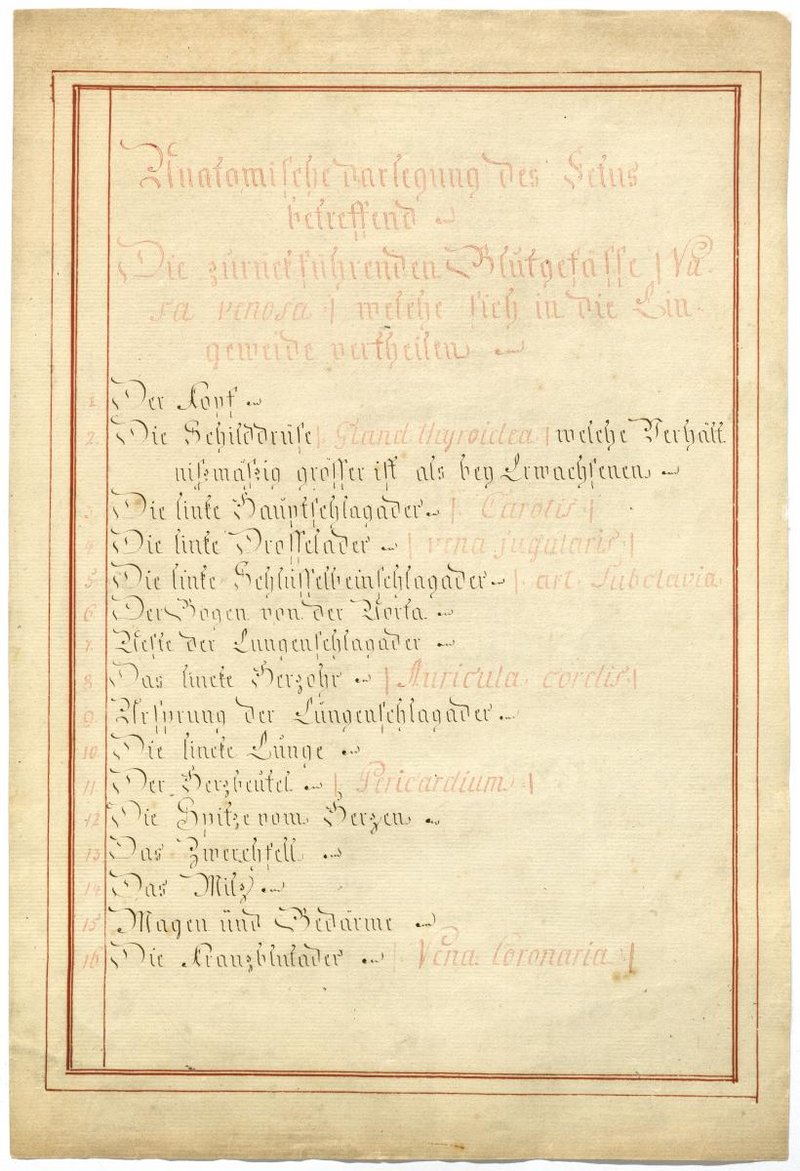 Anatomische darlegung des Fetus
betreffend
Die zurückführenden Blutgefässe | Va-
sa venosa | welche sich in die Ein-
geweide vertheilen
1. Der Kopf
2. Die Schilddrüse | Gland thyroidea | welche Verhält
nißmäßig grösser ist als bey Erwachsenen
3 Die linke Hauptschlagader | Carotis |
4 Die linke Drosselader | vena jugularis |
5 Die linke Schlüsselbeinschlagader | art. Subclavia
6 Der Bogen von der Aorta.
7. Aeste der Lungenschlagader
8 Das lincke Herzohr | Auricula cordis |
9 Ursprung der Lungenschlagader
10 Die lincke Lunge
11 Der Herzbeutel | Pericardium |
12 Die Spitze vom Herzen
13 Das Zwerchfell
14 Das Milz
15 Magen und Gedärme
16 Die Kranzblutader | Vena Coronaria |